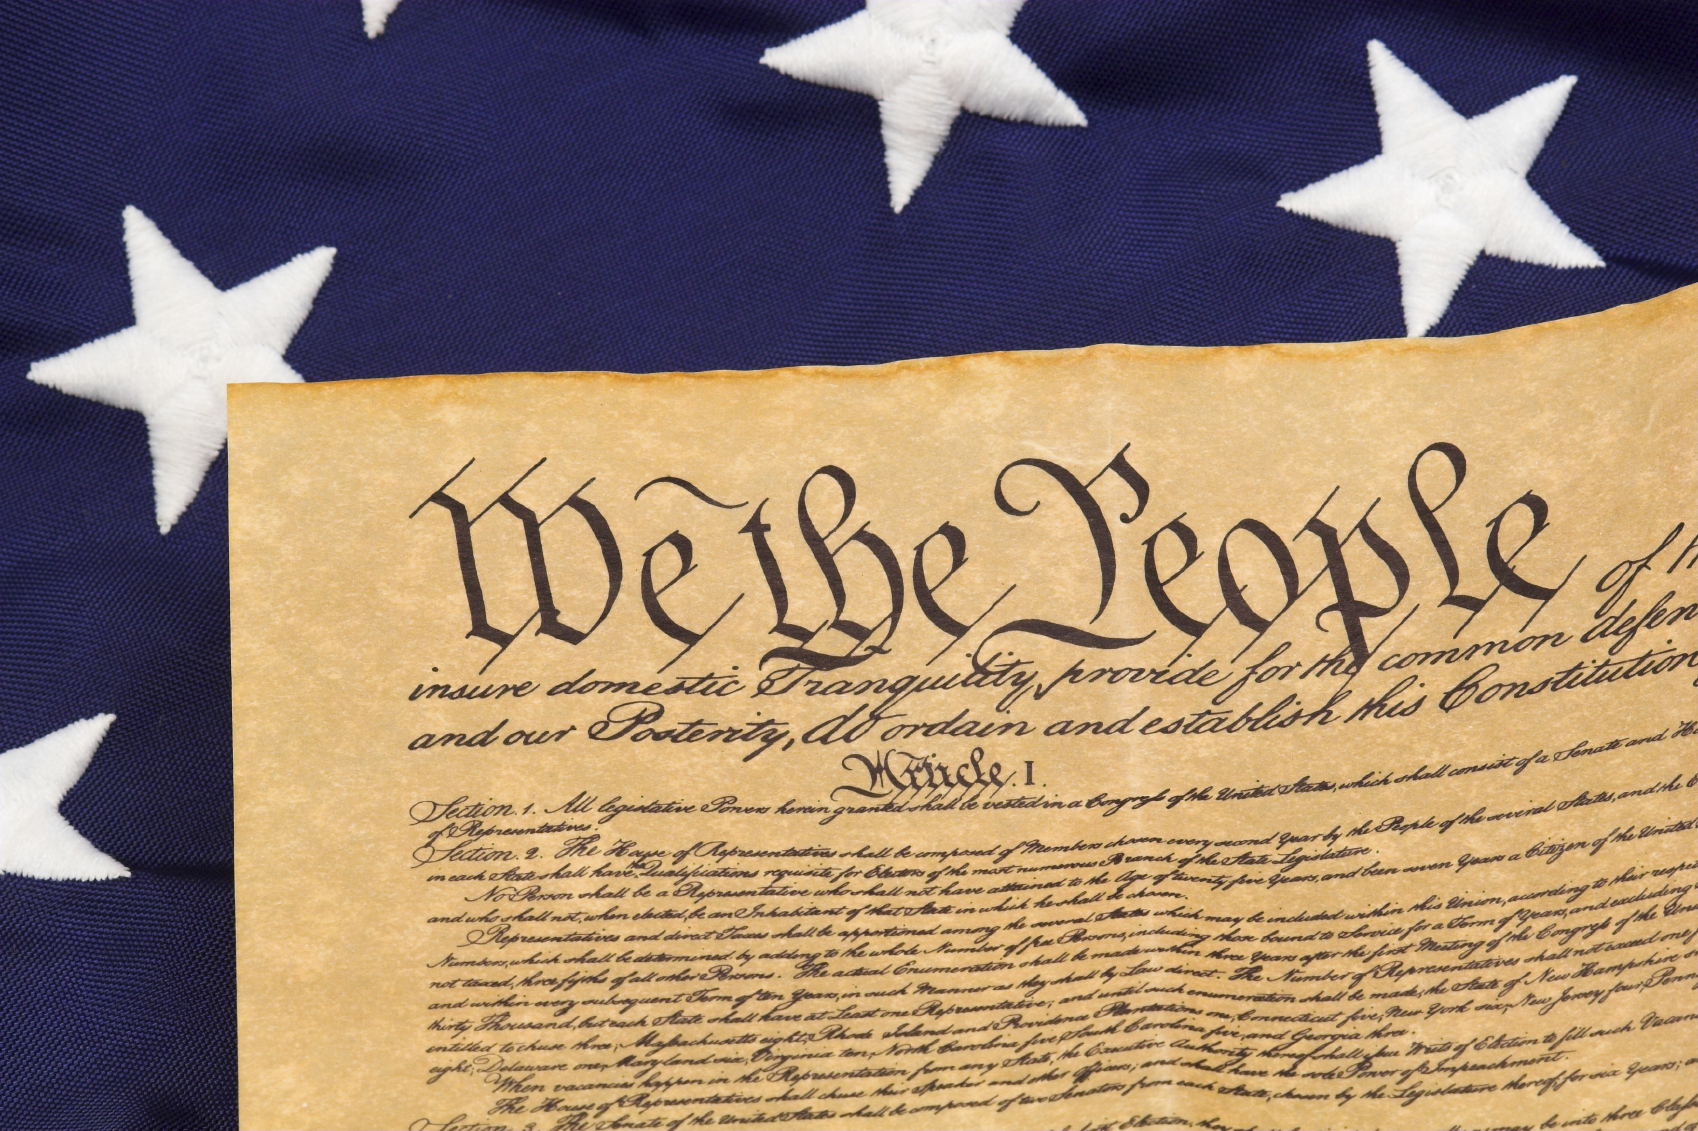 We the People of th
insure domestic Tranquility, provide for the common defen
and our Posterity, do ordain and establish this Constitution
Article. I.
Section. 1. All legislative Powers herein granted shall be vested in a Congress of the United States, which shall consist of a Senate and Ho
of Representatives.
Section. 2. The House of Representatives shall be composed of Members chosen every second Year by the People of the several States, and the E
in each State shall have the Qualifications requisite for Electors of the most numerous Branch of the State Legislature.
No Person shall be a Representative who shall not have attained to the Age of twenty five Years, and been seven Years a Citizen of the United
and who shall not, when elected, be an Inhabitant of that State in which he shall be chosen.
Representatives and direct Taxes shall be apportioned among the several States which may be included within this Union, according to their respec
Numbers, which shall be determined by adding to the whole Number of free Persons, including those bound to Service for a Term of Years, and excluding
not taxed, three fifths of all other Persons. The actual Enumeration shall be made within three Years after the first Meeting of the Congress of the Unit
and within every subsequent Term of ten Years, in such Manner as they shall by Law direct. The Number of Representatives shall not exceed one f
thirty Thousand, but each State shall have at Least one Representative; and until such enumeration shall be made, the State of New Hampshire s
entitled to chuse three, Massachusetts eight, Rhode Island and Providence Plantations one, Connecticut five, New York six, New Jersey four, Penn
eight, Delaware one, Maryland six, Virginia ten, North Carolina five, South Carolina five, and Georgia three.
When vacancies happen in the Representation from any State, the Executive Authority thereof shall issue Writs of Election to fill such Vacan
The House of Representatives shall chuse their Speaker and other Officers; and shall have the sole Power of Impeachment.
Section. 3. The Senate of the United States shall be composed of two Senators from each State, chosen by the Legislature thereof, for six Years; a
Election, they
may be into three Classes